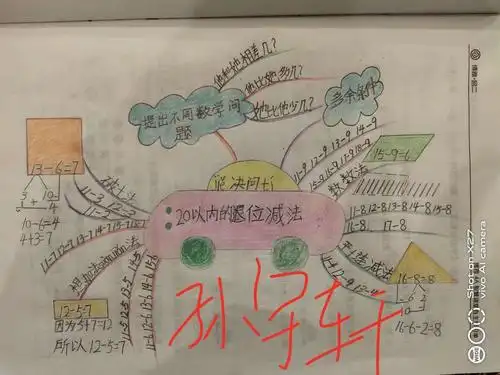 他和她相差几?
他比她多几?
她比他少几?
提出不同数学问
题
多余条件
解决问题
20以内的退位减法
13-6=7
3 10
1 + 4
10-6=4
4+3=7
破十法
11-3 12-3
11-2
11-9 12-9 13-9 14-9
15-9 16-9 17-9 18-9
数数法
15-9=6
11-8 12-8 13-8 14-8 15-8
16-8 17-8
平十法 减法
11-4 12-4 13-4
16-8=8
6 2
10
16-6-2=8
11-7 12-7 13-7 14-7 15-7 16-7
想加法算减法
11-5 12-5 13-5 14-5
11-6 12-6 13-6 14-6 15-6
12-5=7
因为5+7=12
所以12-5=7
孙宇轩
Shot on X27
vivo AI camera